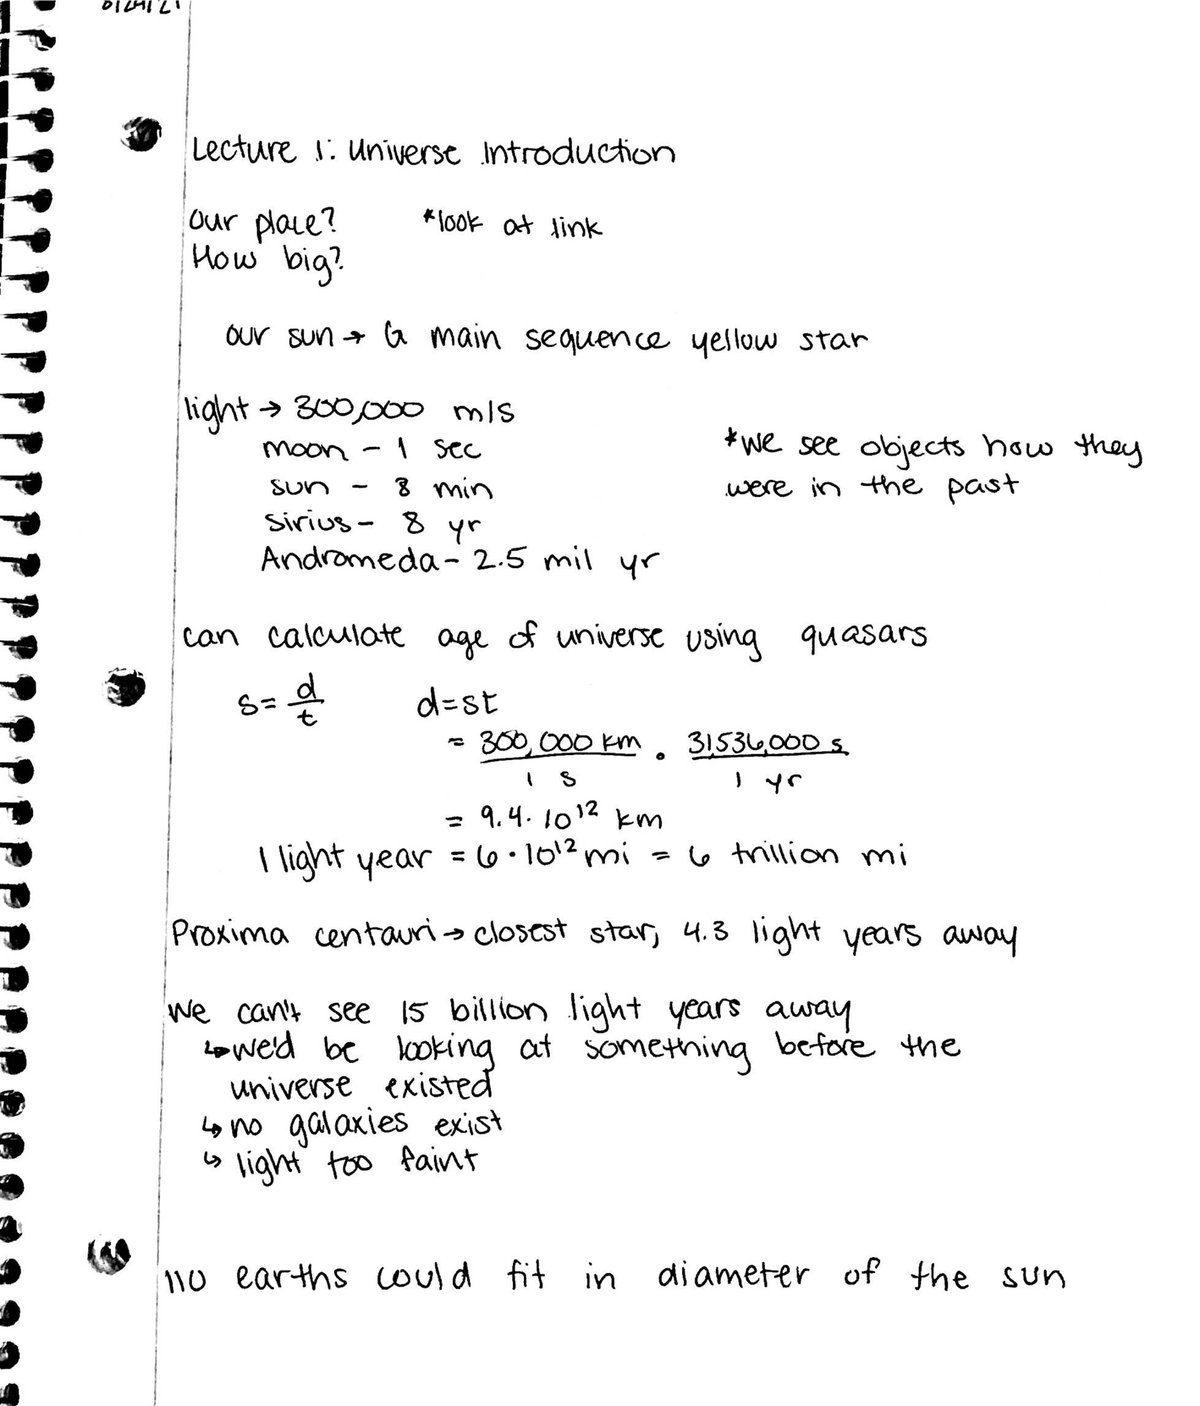 Lecture 1: Universe Introduction
Our place? *look at link
How big?
our sun → G main sequence yellow star
light → 300,000 m/s
moon - 1 sec
*we see objects how they
sun - 8 min
were in the past
Sirius - 8 yr
Andromeda - 2.5 mil yr
can calculate age of universe using quasars
s = d/t d=st
= 300,000 km / 1 s · 31,536,000 s / 1 yr
= 9.4 · 10^12 km
1 light year = 6 · 10^12 mi = 6 trillion mi
Proxima centauri → closest star, 4.3 light years away
We can't see 15 billion light years away
↳ we'd be looking at something before the
universe existed
↳ no galaxies exist
↳ light too faint
110 earths could fit in diameter of the sun